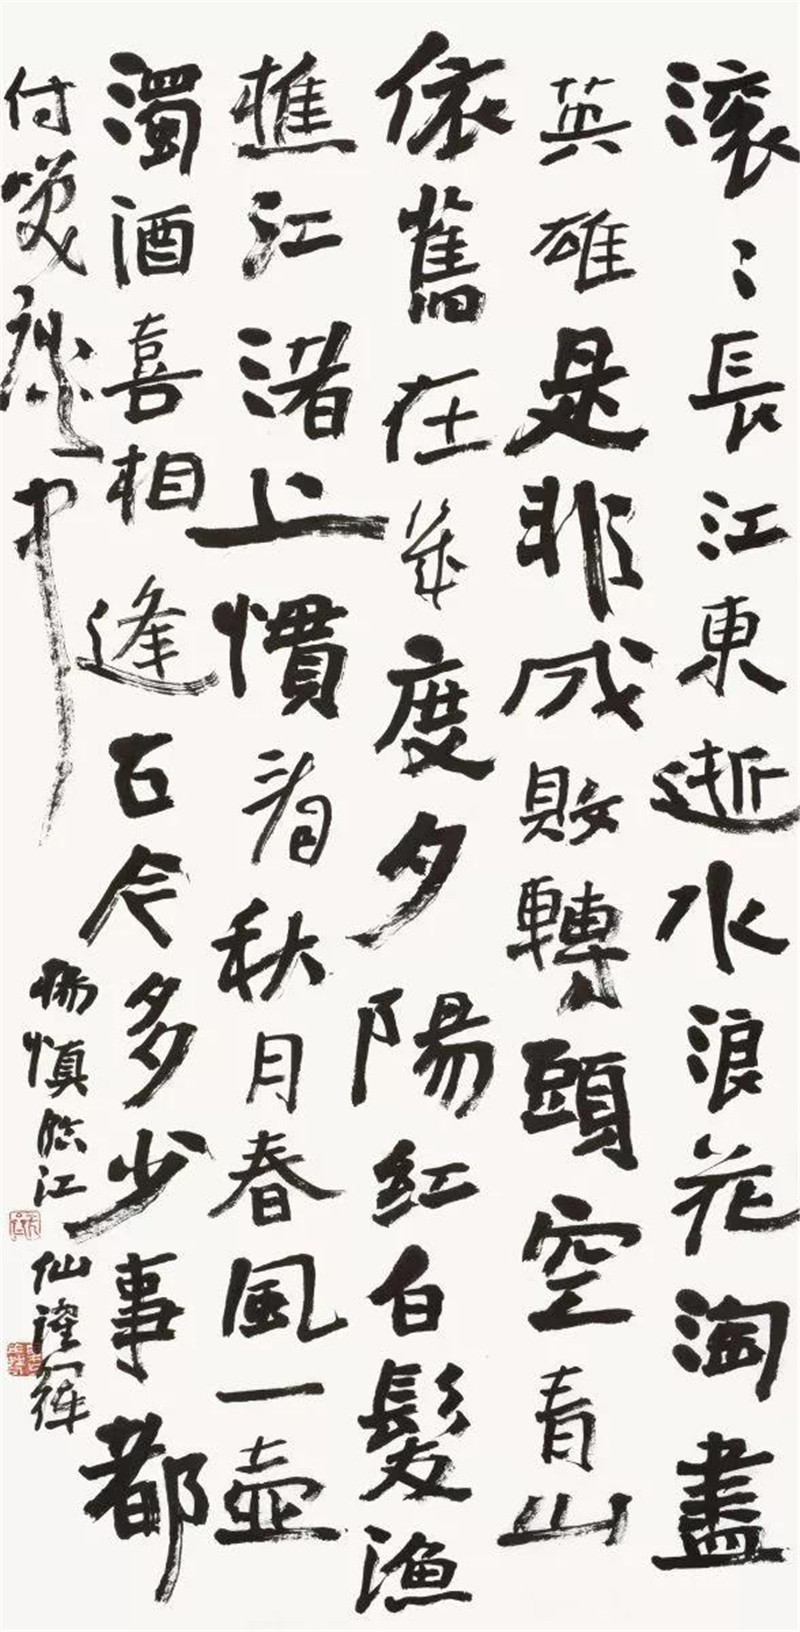 滚〻長江東逝水浪花淘盡
英雄是非成敗轉頭空青山
依舊在幾度夕陽紅白髮漁
樵江渚上慣看秋月春風一壺
濁酒喜相逢古今多少事都
付笑談中
楊慎臨江仙